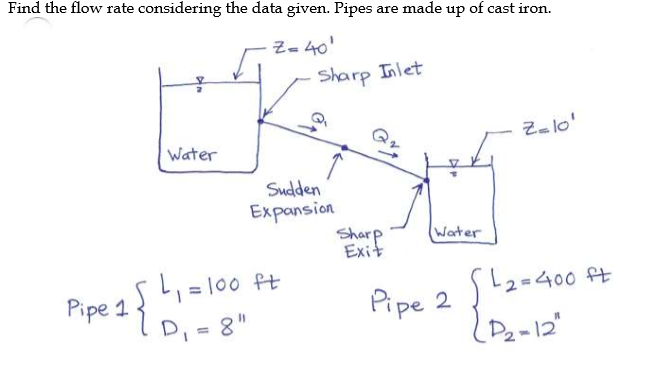 Find the flow rate considering the data given. Pipes are made up of cast iron.
Z=40'
Sharp Inlet
Q1
Q2
Z=10'
Water
Sudden
Expansion
Sharp
Exit
Water
Pipe 1 { L1 = 100 ft
D1 = 8"
Pipe 2 { L2=400 ft
D2=12"